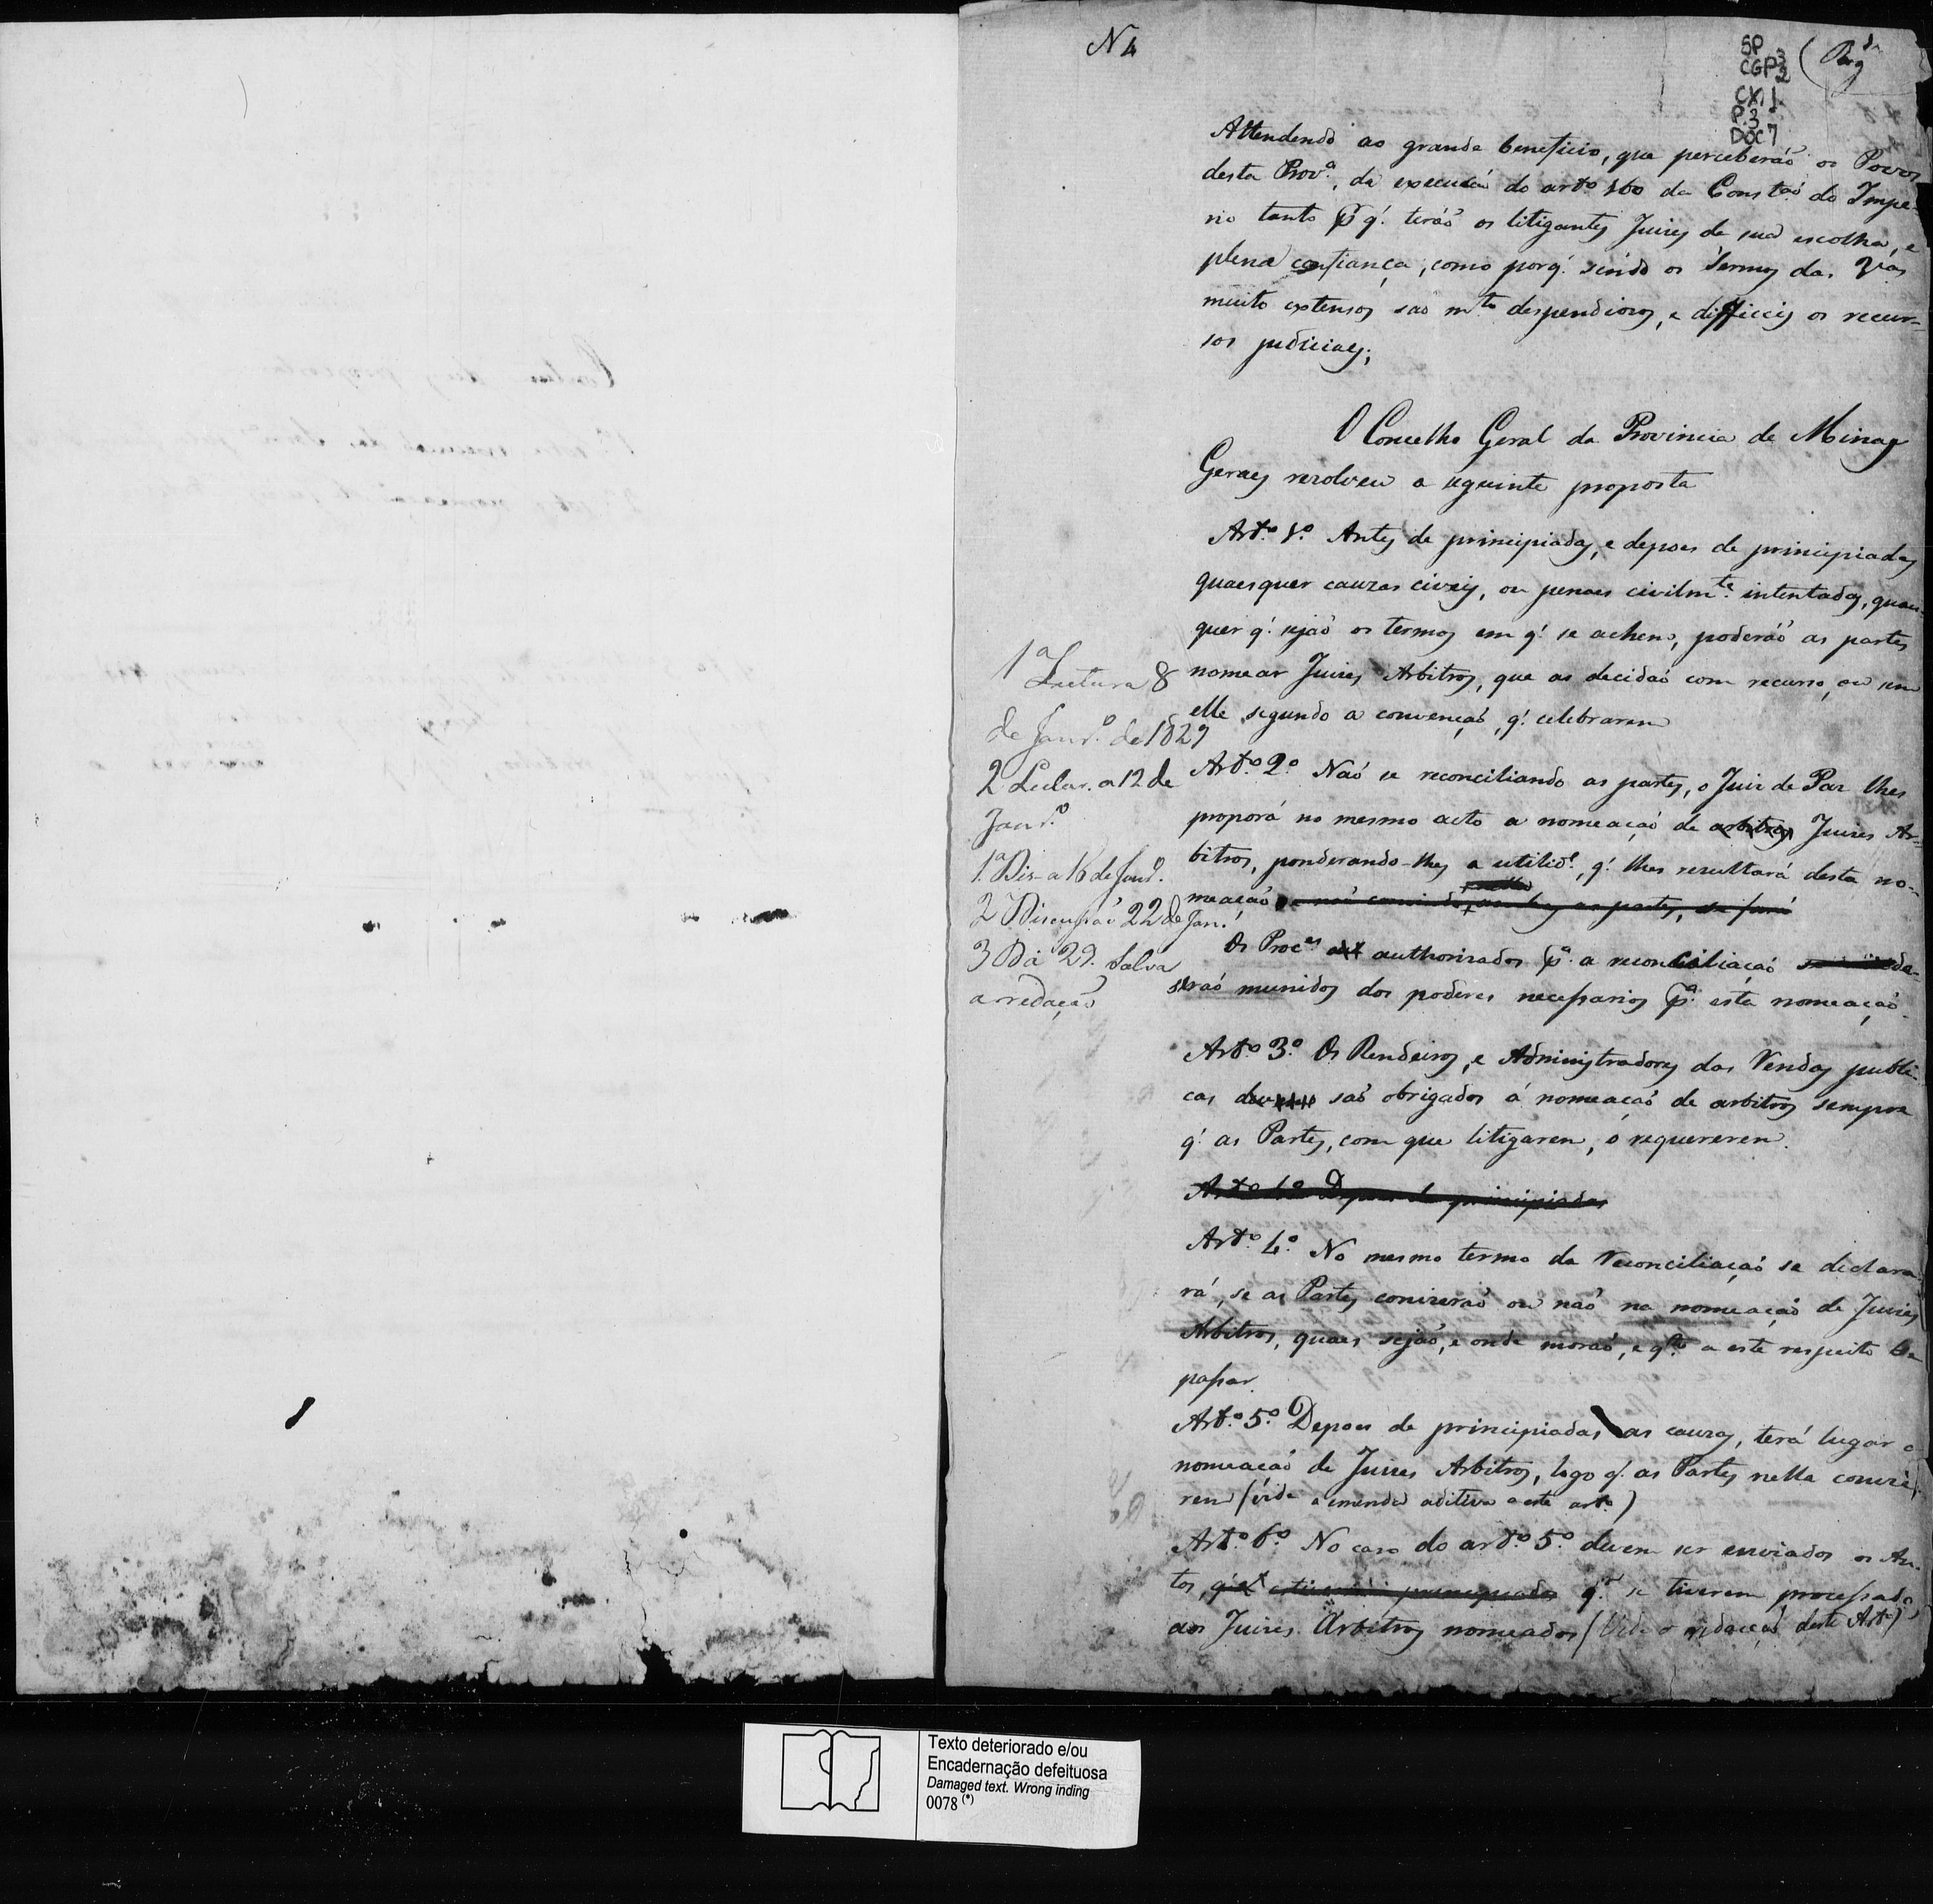 N 4
SP
CGP 3
2
CX. 1
P. 3
DOC 7
Attendendo ao grande beneficio, que perceberáõ os Povos
desta Prov.ª, da execuçaõ do artº 160 da Const.aõ do Impe-
rio tanto p.r q.' teráõ os litigantes Juizes de sua escolha, e
plena confiança, como porq.' sendo os termos das V.as
muito extensos saõ m.to despendiozos, e difficeis os recur-
sos judiciaes;
O Concelho Geral da Provincia de Minas
Geraes rezolveu a seguinte proposta
Art.º 1.º Antes de principiadas, e depois de principiadas
quaesquer cauzas civeis, ou penaes civilm.te intentadas, quaes-
quer q.' sejaõ os termos em q.' se achem, poderáõ as partes
nomear Juizes Arbitros, que as decidaõ com recurso, ou sem
elle segundo a convençaõ, q.' celebrarem
1ª Leitura 8
de Janr.º de 1829
2 Leitur. a 12 de
Janr.º
1.ª Dis. a 16 de Janr.º
2 Discussaõ 22 de Jan.
3 Dª 29. Salva
a redaçaõ
Art.º 2.º Naõ se reconciliando as partes, o Juiz de Paz lhes
proporá no mesmo acto a nomeaçaõ de arbitros Juizes Ar-
bitros, ponderando-lhes a utilid.e, q.' lhes rezultará desta no-
meaçaõ e naõ convindo nella as partes, se fará
Os Proc.es authorizados p.ª a reconciliaçaõ
seraõ munidos dos poderes necessarios p.ª esta nomeaçaõ
Art.º 3.º Os Rendeiros, e Administradores das Rendas publi-
cas saõ obrigados á nomeaçaõ de arbitros sempre
q.' as Partes, com que litigarem, o requererem.
Art.º 4.º Depois de principiadas
Art.º 4.º No mesmo termo da reconciliaçaõ se declara-
rá, se as Partes convieraõ ou naõ na nomeaçaõ de Juizes
Arbitros, quaes sejaõ, e onde moraõ, e q.to a este respeito se
passar.
Art.º 5.º Depois de principiadas as cauzas, terá lugar a
nomeaçaõ de Juizes Arbitros, logo q.' as Partes nella convie-
rem (vide a emenda aditiva a este artº)
Art.º 6.º No caso do artº 5.º devem ser enviados os Au-
tos, q.' se tiverem processado
aos Juizes Arbitros nomeados (Vide a redacçaõ deste Artº)
Texto deteriorado e/ou
Encadernação defeituosa
Damaged text. Wrong inding
0078 (*)